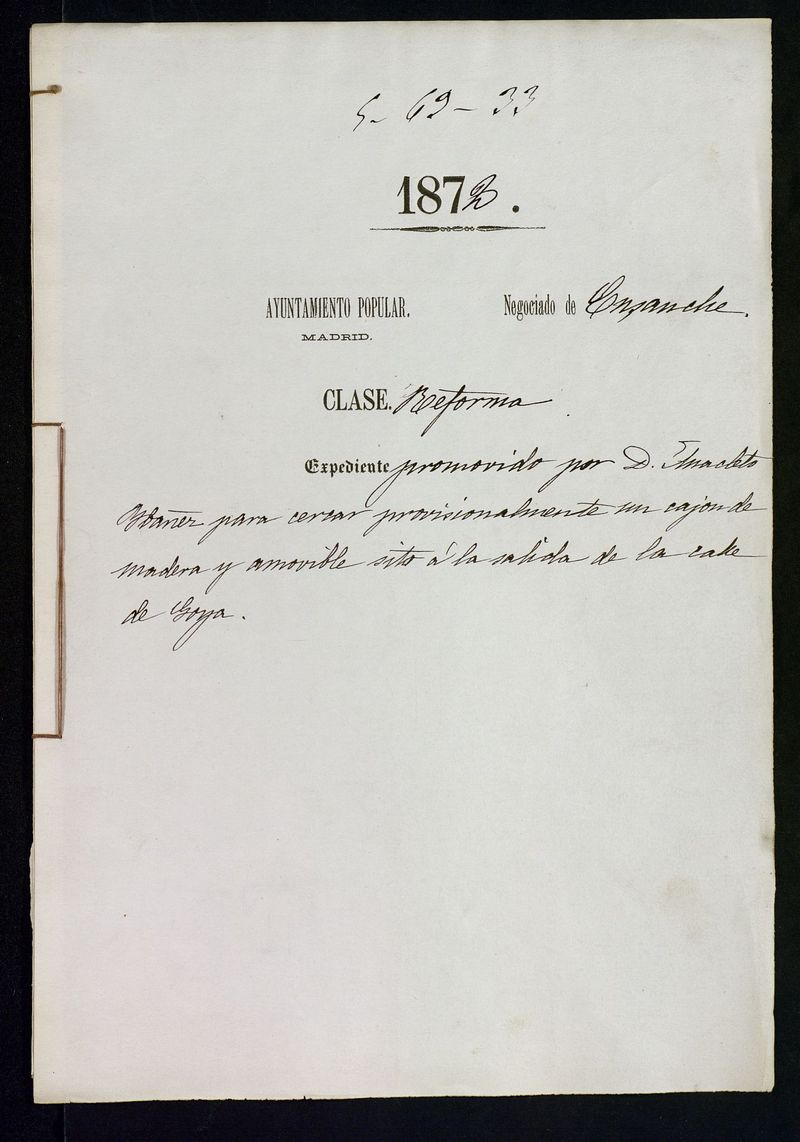 5-69-33
1872.
AYUNTAMIENTO POPULAR. Negociado de Ensanche.
MADRID.
CLASE. Reforma
Expediente promovido por D. Anacleto
Ybañez para cercar provisionalmente un cajon de
madera y amovible sito á la salida de la calle
de Goya.